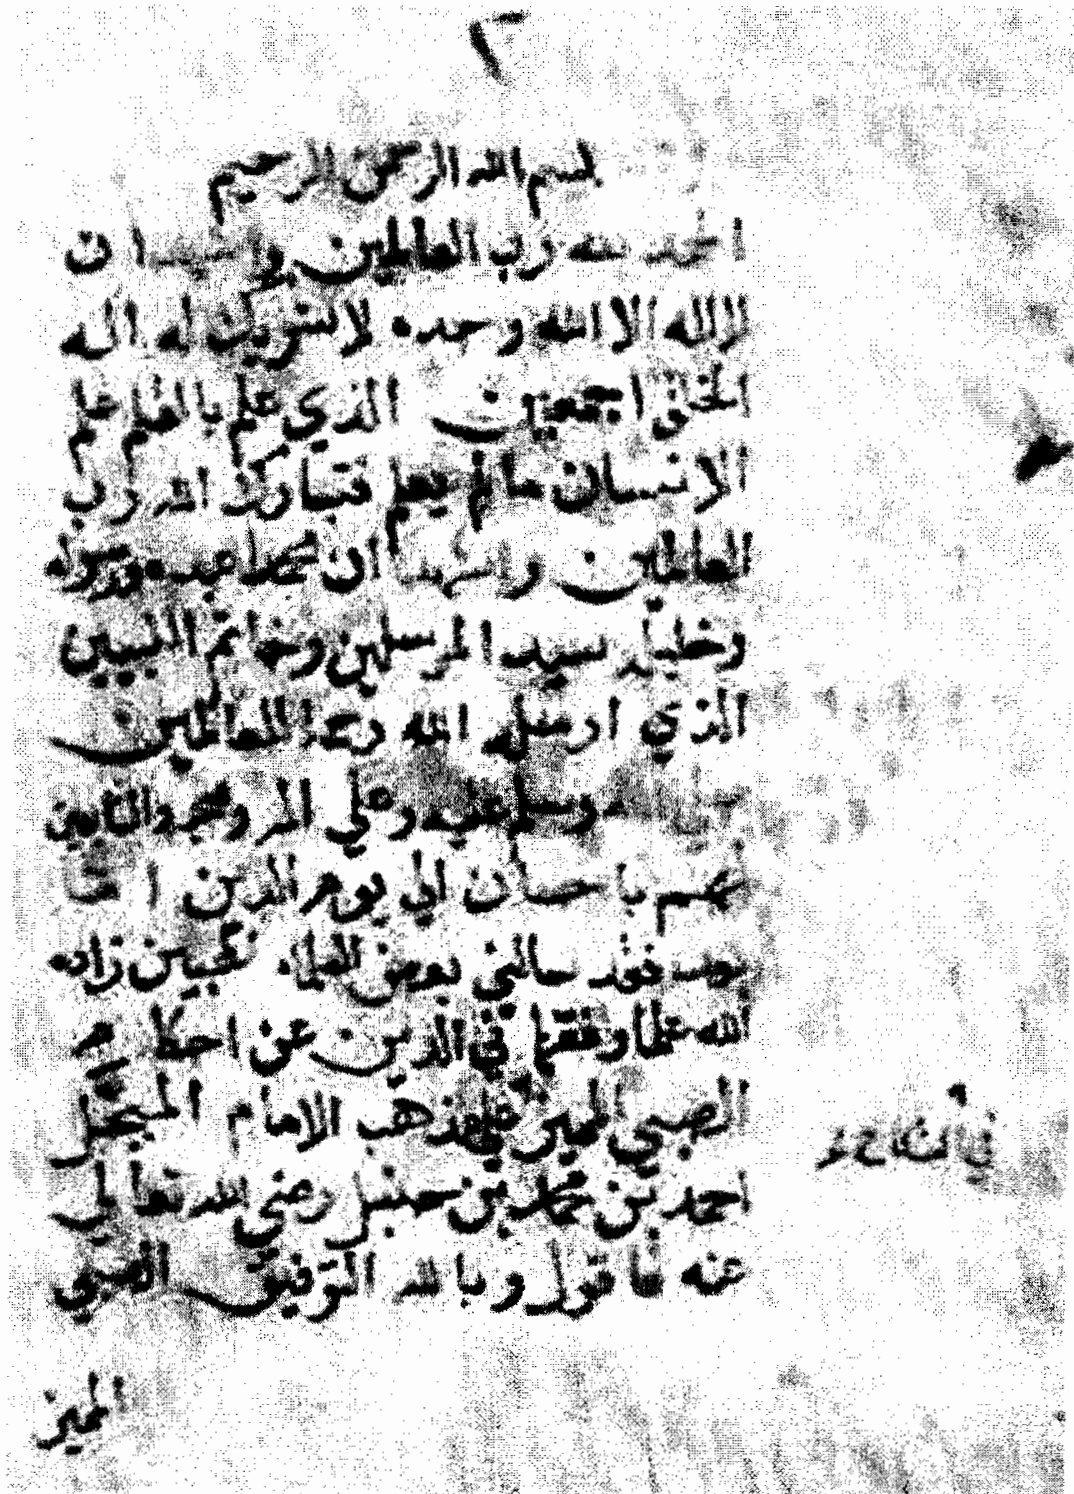 ٢
بسم الله الرحمن الرحيم
الحمد لله رب العالمين واشهد ان
لااله الا الله وحده لاشريك له اله
الخلق اجمعين الذي علم بالقلم علم
الانسان مالم يعلم فتبارك الله رب
العالمين واشهد ان محمدا عبده ورسوله
وخليله سيد المرسلين وخاتم النبيين
الذي ارسله الله رحمة للعالمين
وسلم عليه وعلي اله وصحبه والتابعين
لهم باحسان الي يوم الدين اما
بعد فقد سالني بعض العلماء زاده
الله علما وفقها في الدين عن احكام
الصبي المميز علي مذهب الامام المبجل
احمد بن محمد بن حنبل رضي الله تعالي
عنه فاقول وبالله التوفيق الصبي
المميز
في النكاح